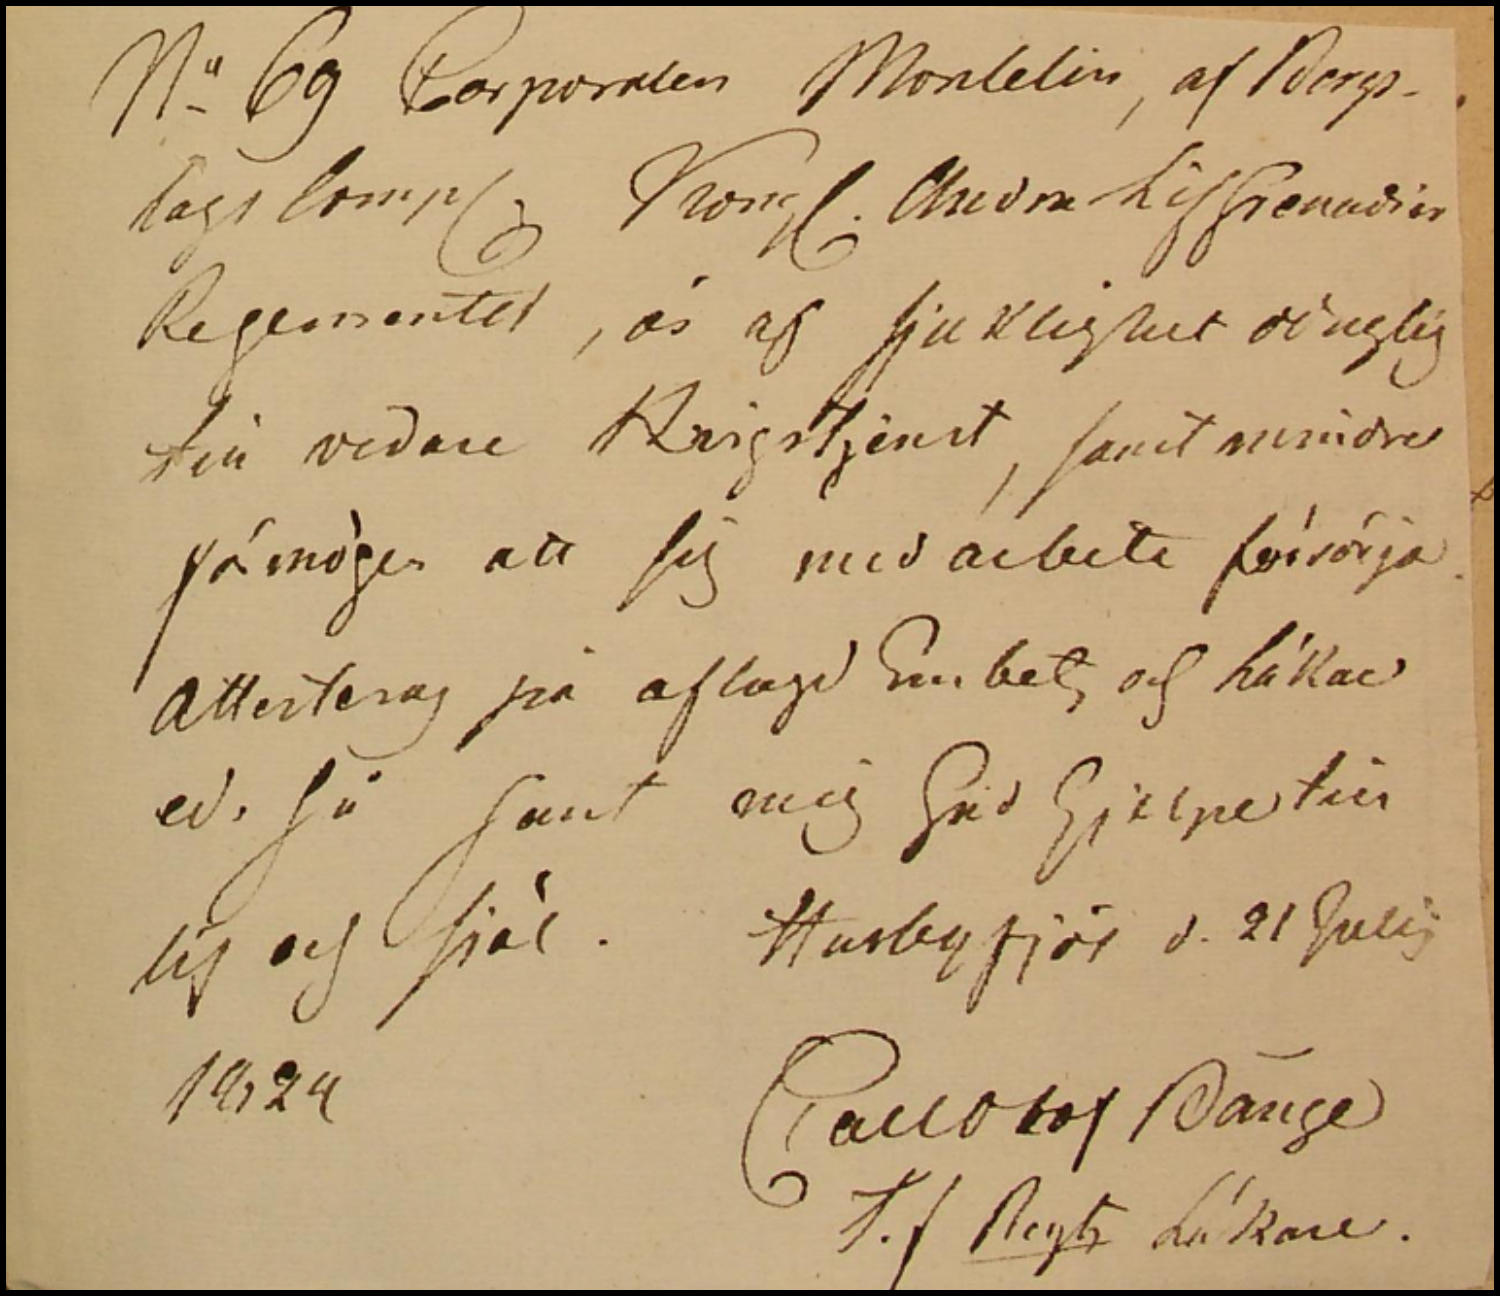 No 69 Corporalen Montelin, af Bergs-
lags Comp. Kongl. Andra LifGrenadier
Regementet, är af sjuklighet oduglig
till vidare Krigstjenst, samt mindre
förmögen att sig med arbete försörja.
Attesteras på aflagd Embets och Läkare
ed. Så sant mig Gud hjelpe till
lif och själ. Husbyfjöl d. 21 Julij
1824
Carl Olof Bånge
T.f Regts Läkare.